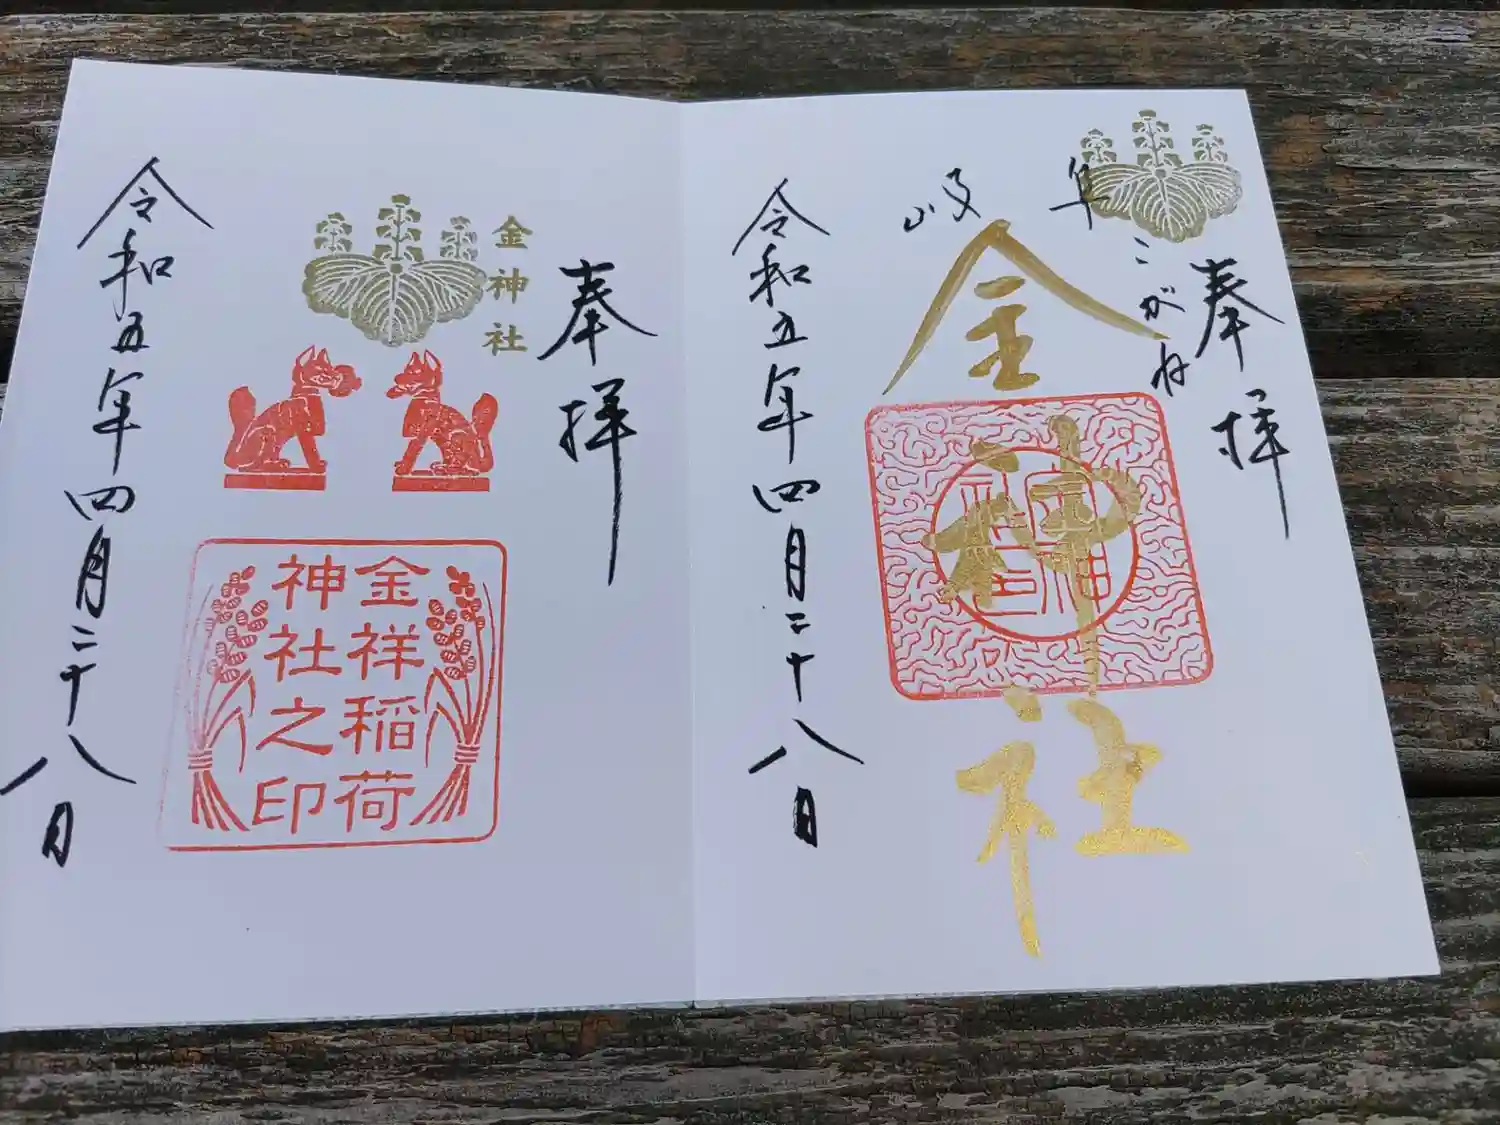 奉拝
岐阜
こがね
金神社
令和五年四月二十八日
奉拝
金神社
金祥稲荷
神社之印
令和五年四月二十八日